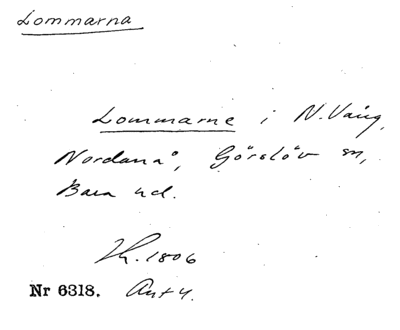 Lommarna
Lommarne i N. Vång,
Nordanå, Görslöv sn,
Bara hd.
1806
Nr 6318. Ant 4.